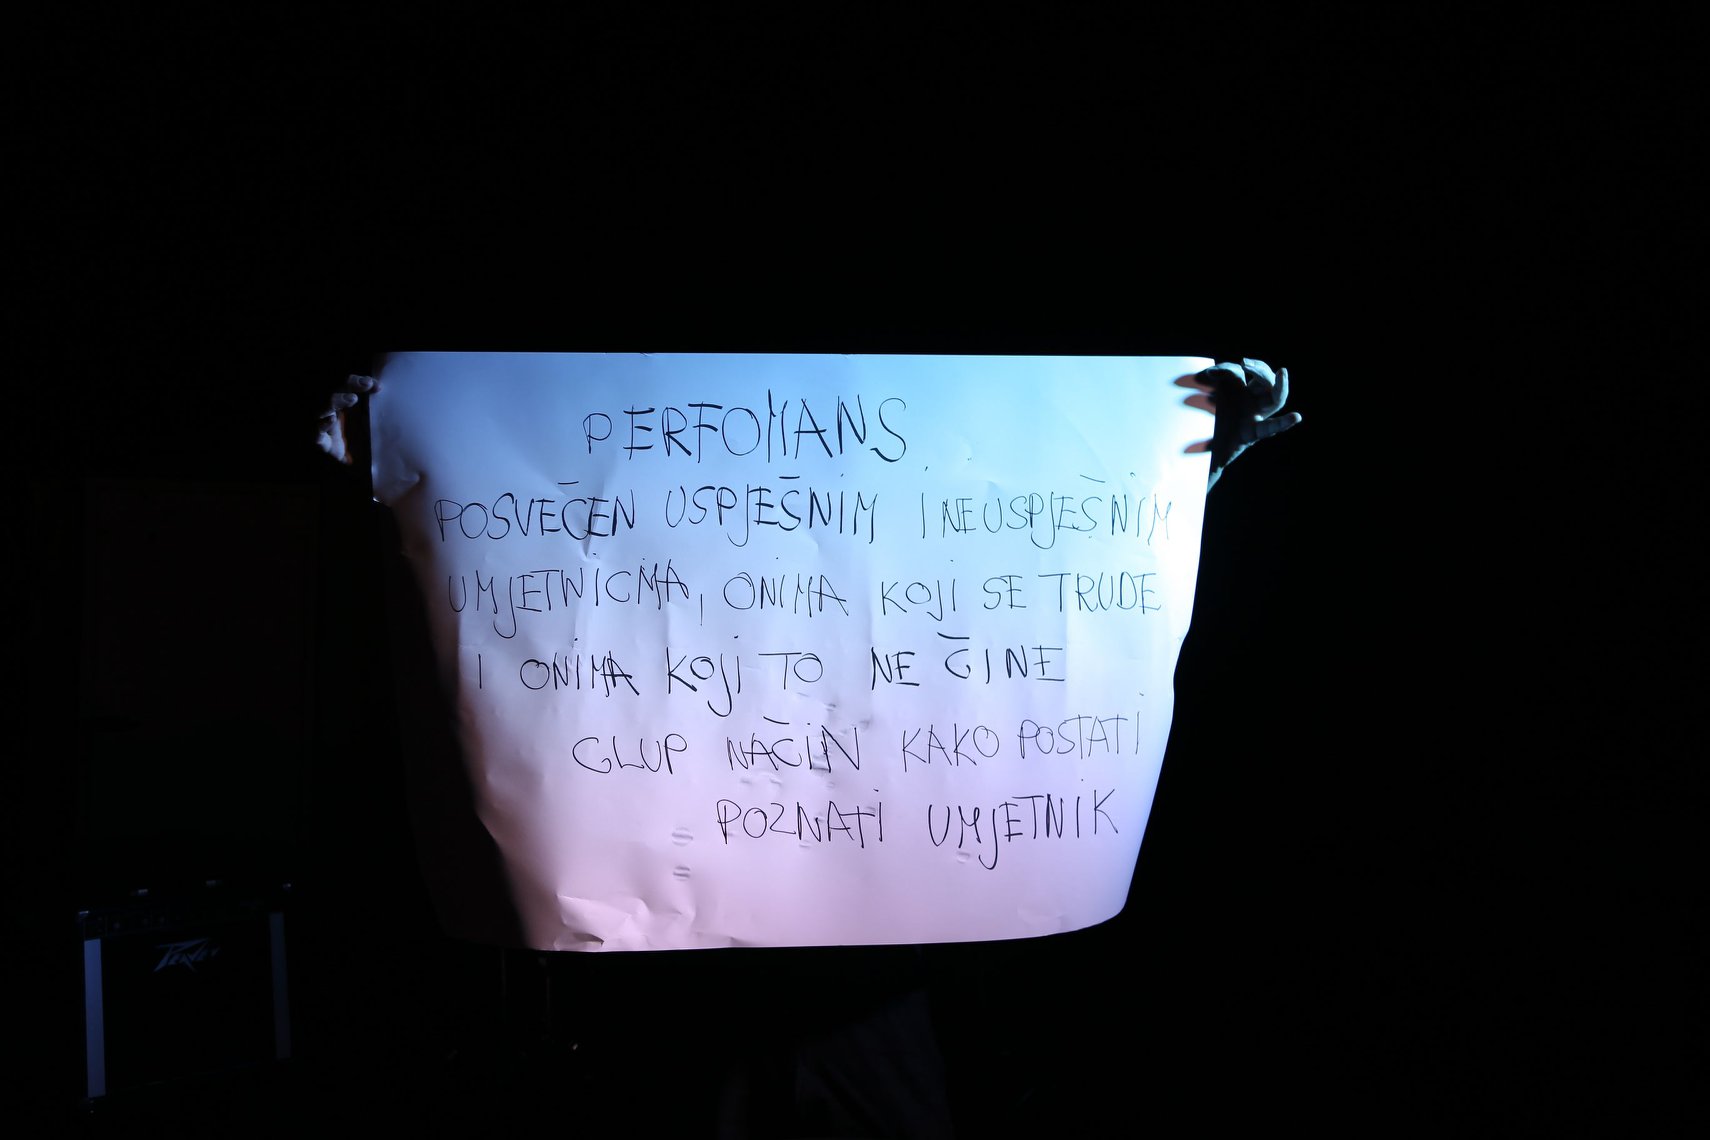 PERFOMANS
POSVEČEN USPJEŠNIM I NEUSPJEŠNIM
UMJETNICMA, ONIMA KOJI SE TRUDE
I ONIMA KOJI TO NE ČINE
GLUP NAČIN KAKO POSTATI
POZNATI UMJETNIK
PEAVEY